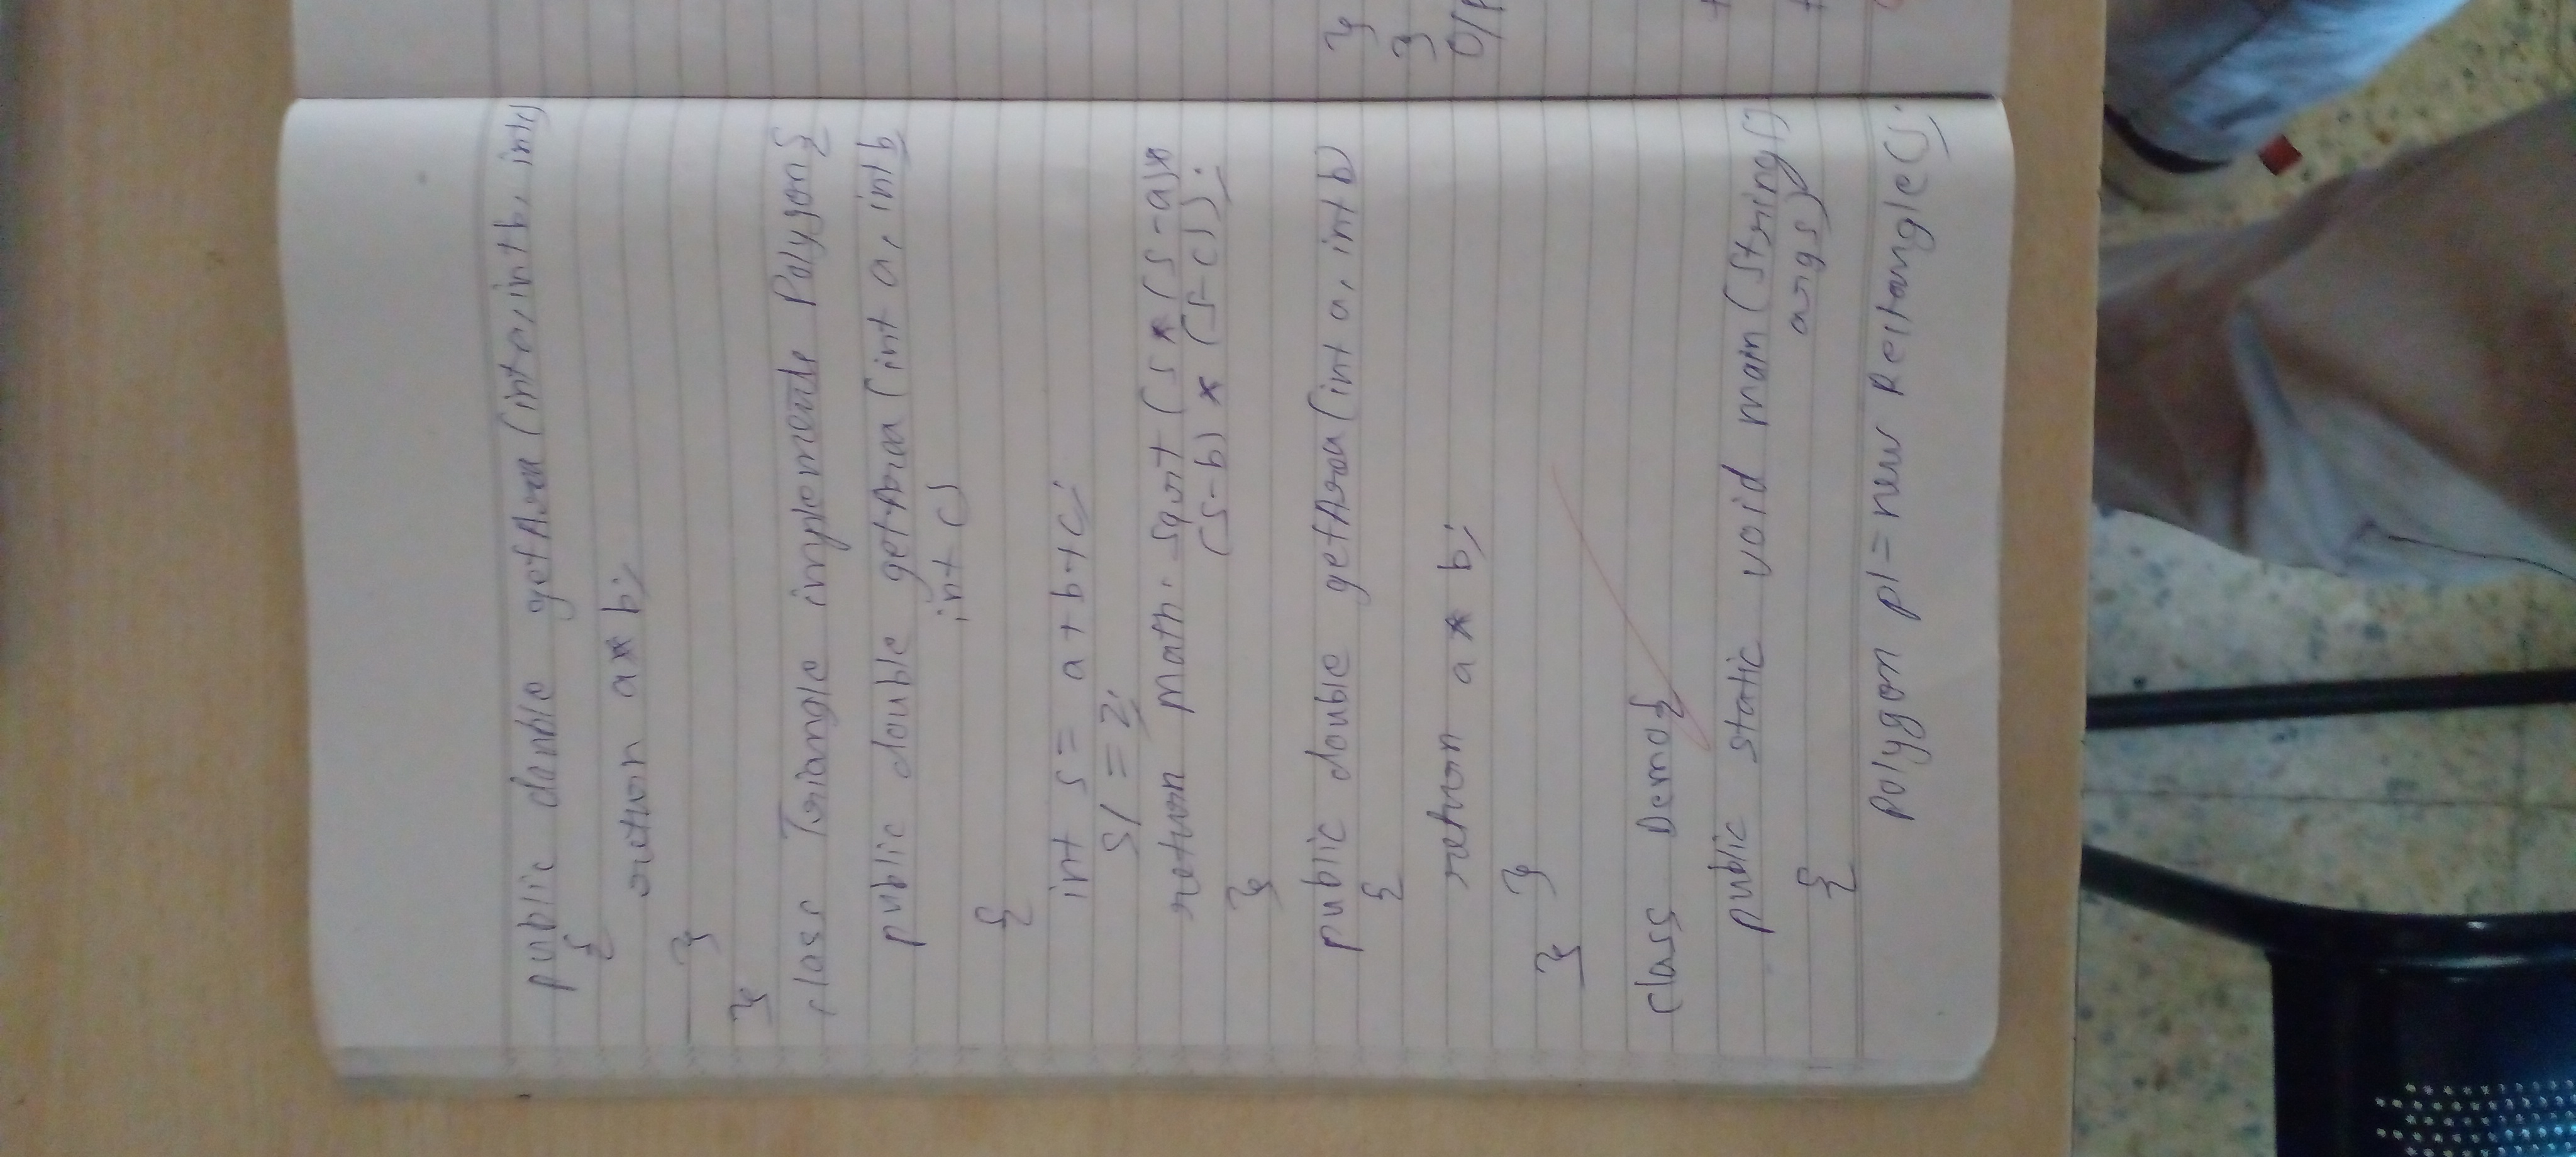 public double getArea(int a, int b, int c)
{
return a*b;
}
}
class Triangle implements Polygon{
public double getArea(int a, int b
int c)
{
int s = a+b+c;
s/=2;
return Math.sqrt(s*(s-a)*
(s-b)*(s-c));
}
public double getArea(int a, int b)
{
return a*b;
}
}
class Demo{
public static void main(String[]
args)
{
Polygon p1 = new Rectangle();
}
}
O/P